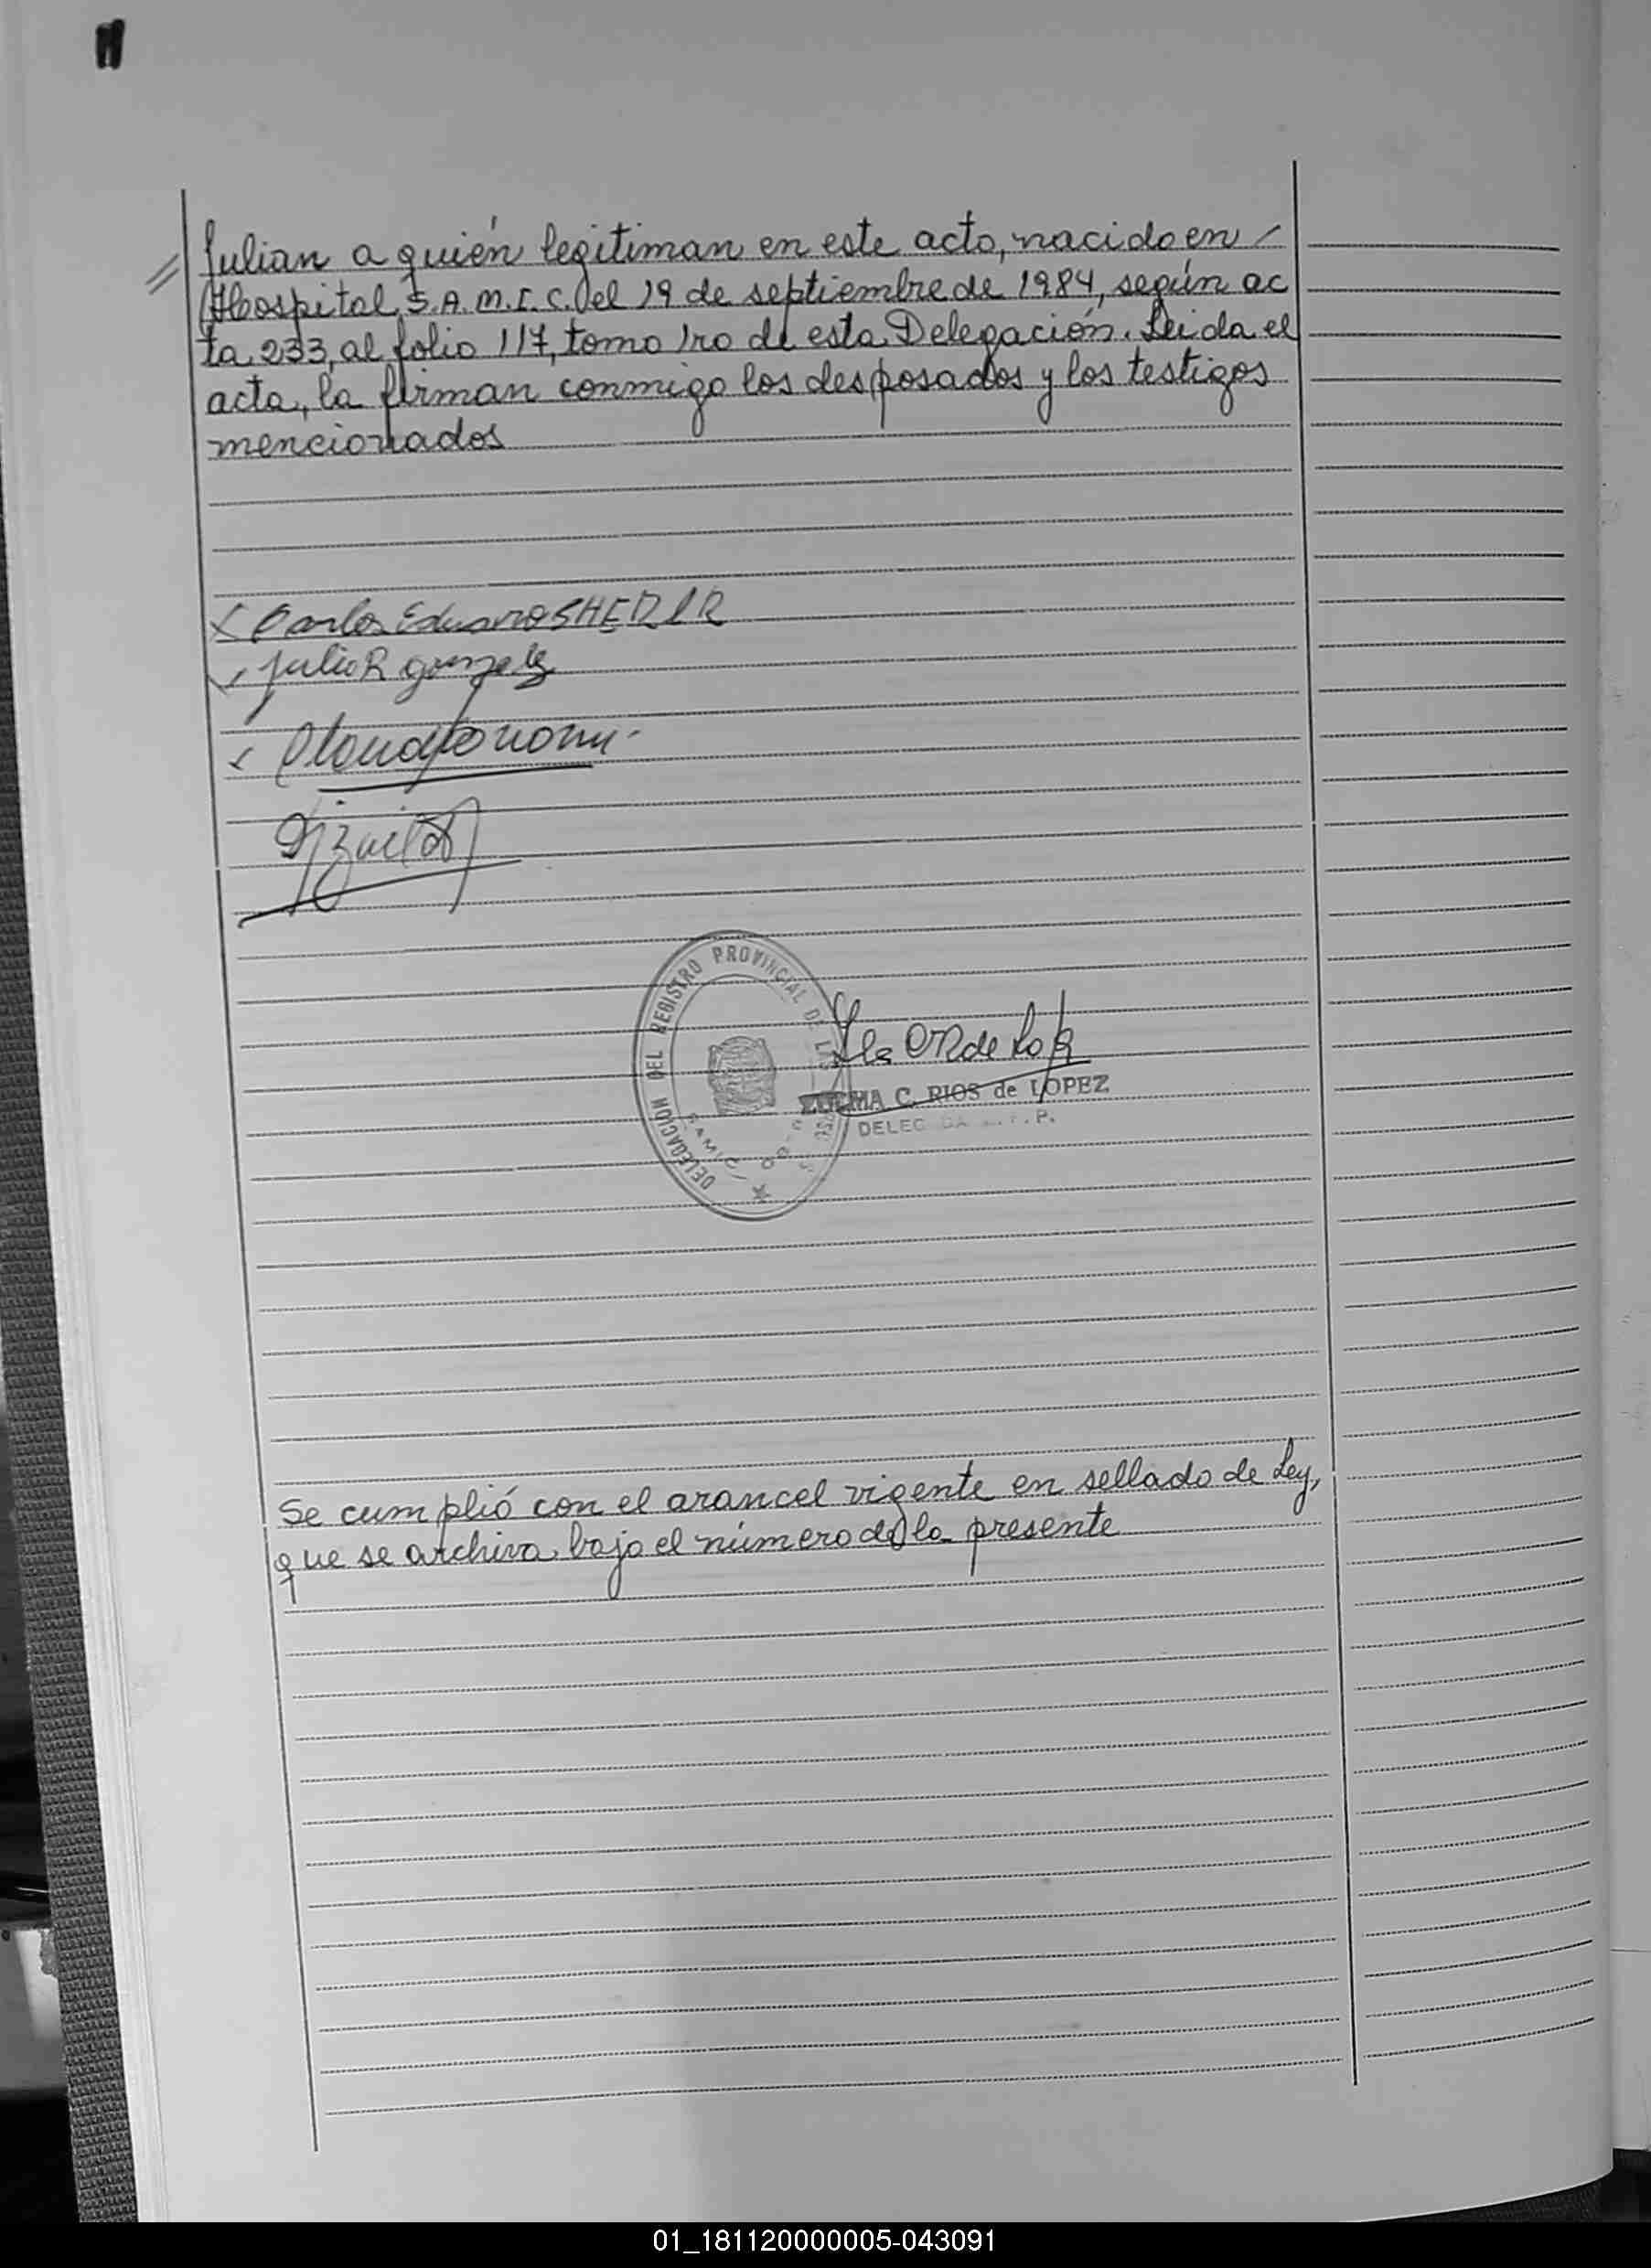 // Julian a quién legitiman en este acto, nacido en /
Hospital S.A.M.I.C. el 19 de septiembre de 1984, según ac
ta 233, al folio 117, tomo 1ro de esta Delegación. Leida el
acta, la firman conmigo los desposados y los testigos
mencionados
Carlos Eduardo SHERER
Julio R Gonzalez
DELEGACION DEL REGISTRO PROVINCIAL DE LAS
SAMIC
ZULMA C. RIOS de LOPEZ
Se cumplió con el arancel vigente en sellado de Ley,
que se archiva bajo el número de la presente
01_181120000005-043091